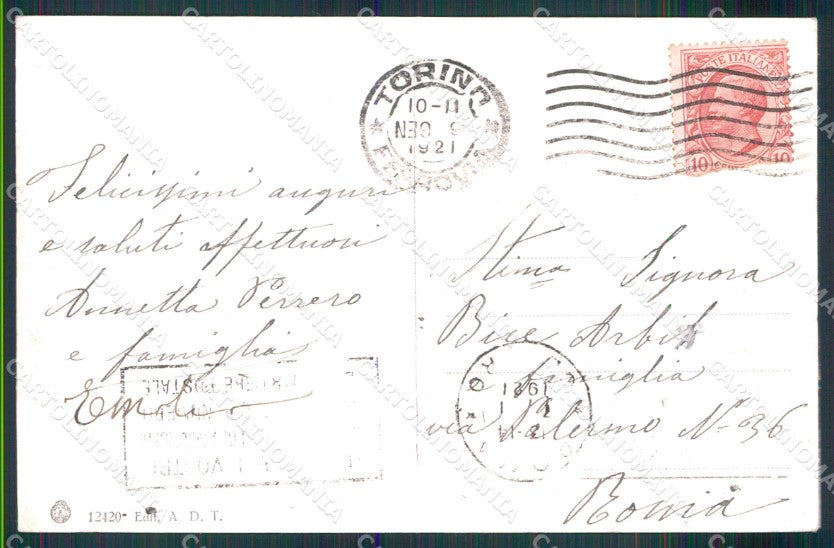 TORINO
10-11
9 GEN
1921
FERROVIA
POSTE ITALIANE
10 10
Felicissimi auguri
e saluti affettuosi
Annetta Perrero
e famiglia
Stima Signora
Bice
e famiglia
via Palermo N° 36
Roma
1921
12420 Edit. A. D. T.
CARTOLINOMANIA